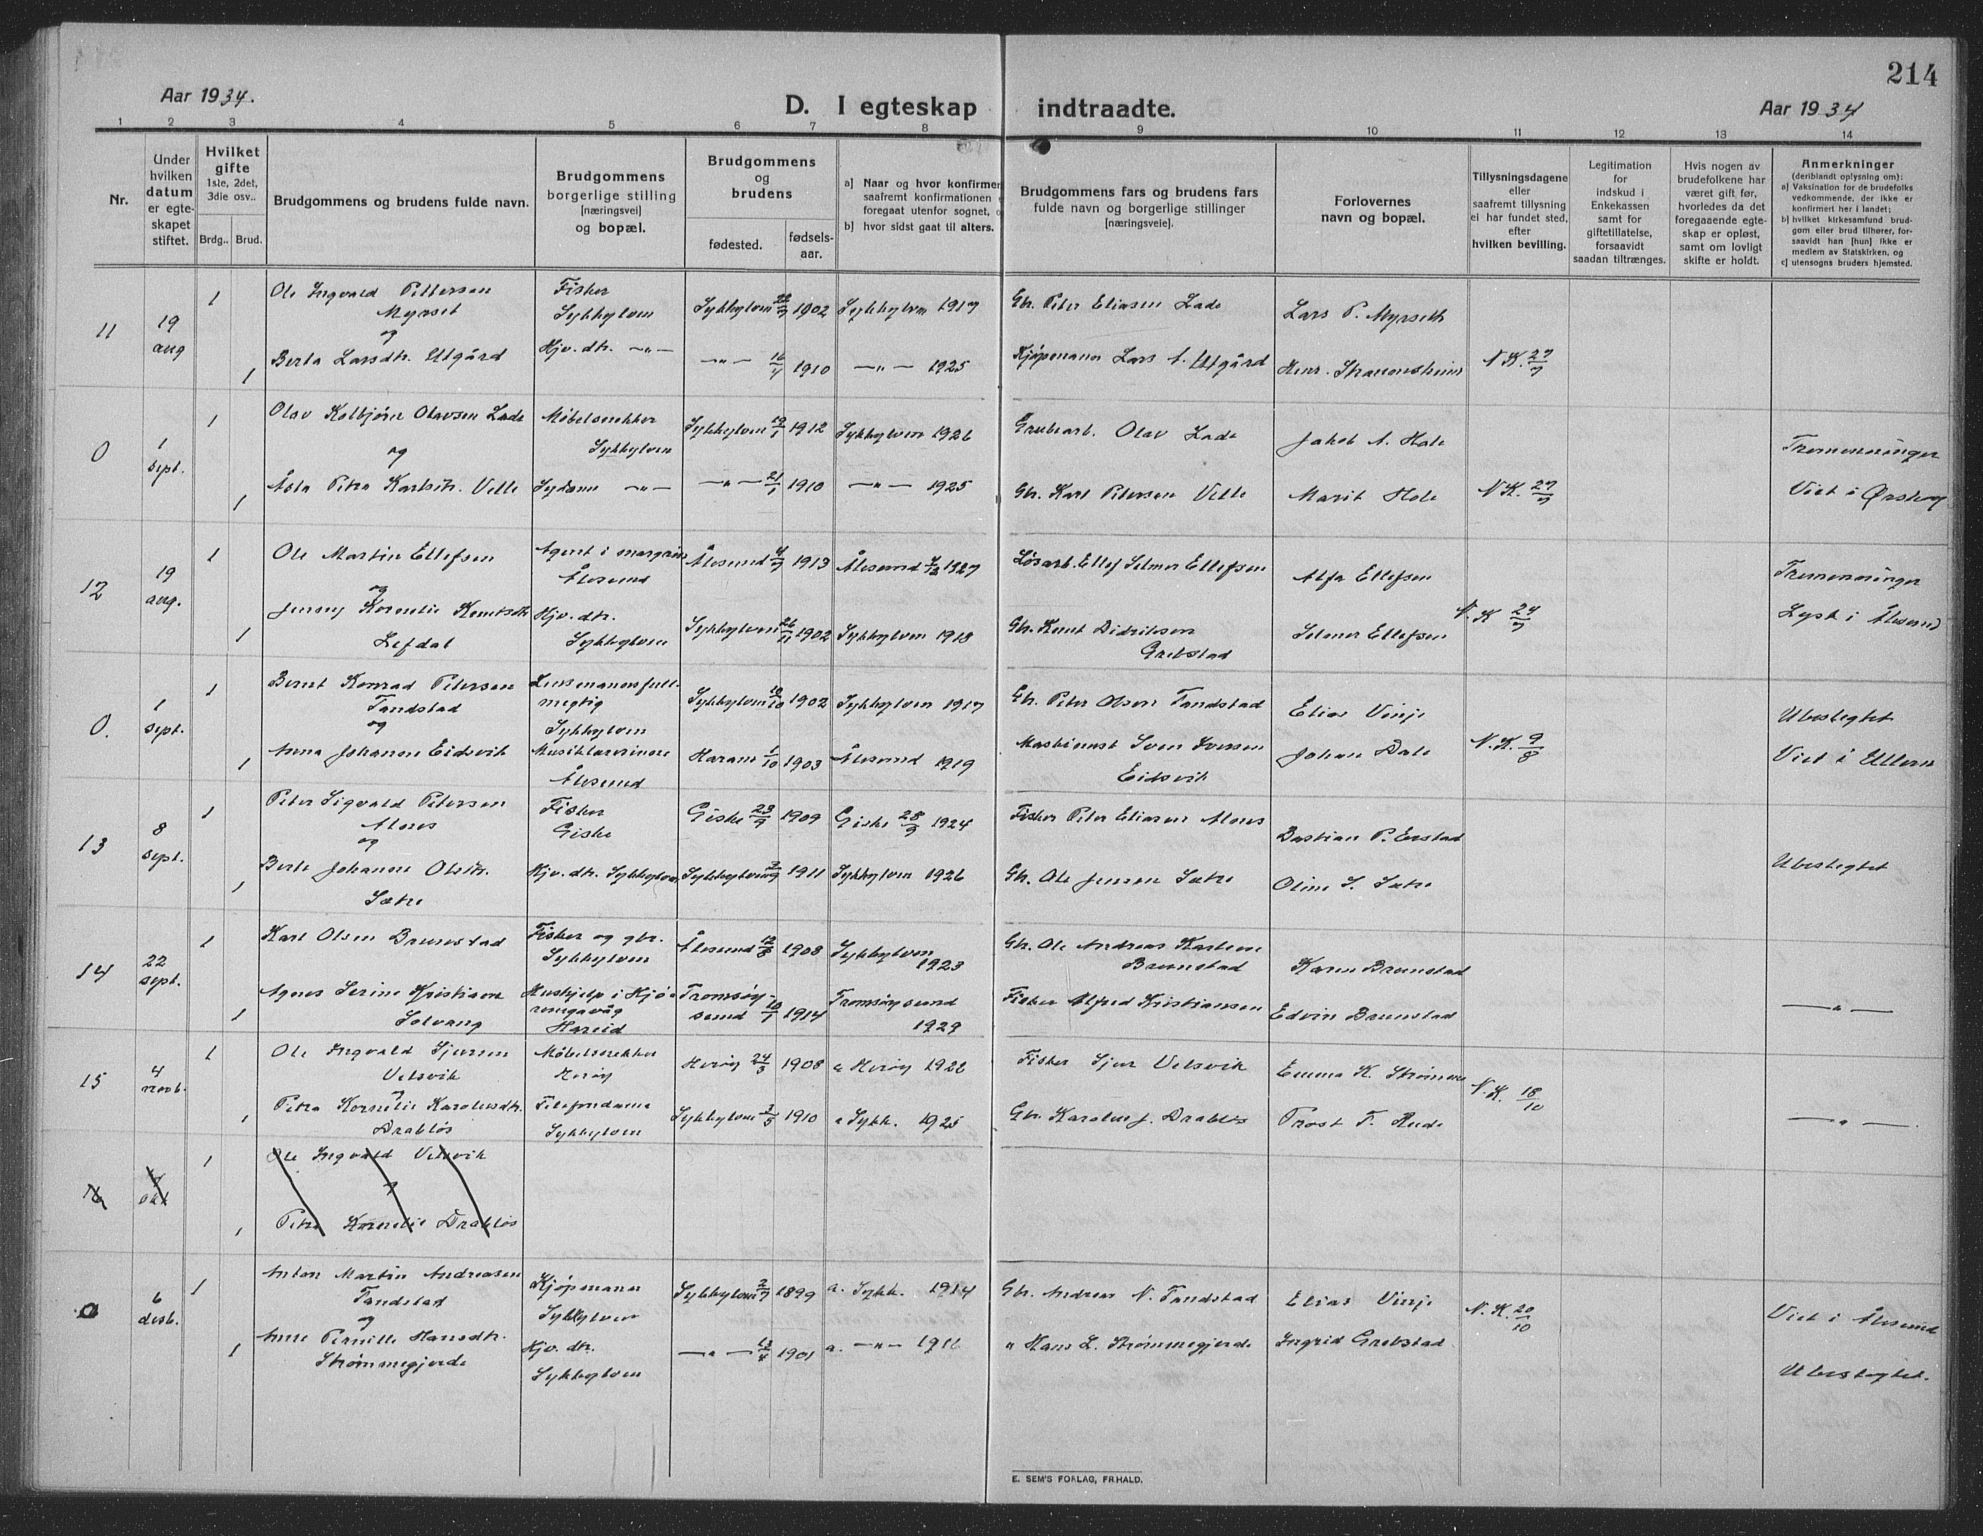 214
Aar 1934.
D. I egteskap indtraadte.
Aar 1934
1 2 3 4 5 6 7 8 9 10 11 12 13 14
Nr.
Under
hvilken
datum
er egte-
skapet
stiftet.
Hvilket
gifte
1ste, 2det,
3die osv..
Brdg.. Brud.
Brudgommens og brudens fulde navn.
Brudgommens
borgerlige stilling
[næringsvei]
og bopæl.
Brudgommens
og
brudens
fødested.
fødsels-
aar.
a] Naar og hvor konfirmer
saafremt konfirmationen
foregaat utenfor sognet,
b] hvor sidst gaat til alters.
Brudgommens fars og brudens fars
fulde navn og borgerlige stillinger
[næringsveie].
Forlovernes
navn og bopæl.
Tillysningsdagene
eller
saafremt tillysning
ei har fundet sted,
efter
hvilken bevilling.
Legitimation
for
indskud i
Enkekassen
samt for
giftetillatelse,
forsaavidt
saadan tiltrænges.
Hvis nogen av
brudefolkene har
været gift før,
hvorledes da det
foregaaende egte-
skap er opløst,
samt om lovligt
skifte er holdt.
Anmerkninger
(deriblandt oplysning om):
a] Vaksination for de brudefolks
vedkommende, der ikke er
konfirmert her i landet;
b] hvilket kirkesamfund brud-
gom eller brud tilhører, for-
saavidt han [hun] ikke er
medlem av Statskirken, og
c] utensogns bruders hjemsted.
11
19
aug
1
Ole Ingvald Pettersen
Myrset
og
Fisker
Sykkylven
Sykkylven 1902
Sykkylven 1917
Gbr. Peter Eliasen Lade
Lars P. Myrseth
1
Berta Larsdtr. Utgård
Hjv. dtr. —"—
—"— 16/4 1910
—"— 1925
Kjøpmann Lars A. Utgård
N.K. 27/7
0
1
sept.
1
Olav Kolbjørn Olavsen Lade
og
Møbelsnekker
Sykkylven
Sykkylven 19/1 1912
Sykkylven 1926
Grubearb. Olav Lade
Jakob A. Hole
Tremenninger
1
Åsta Petra Karlsdtr. Velle
Sydame —"—
—"— 21/1 1910
—"— 1925
Gbr. Karl Petersen Velle
Marit Hole
N.K. 27/7
Viet i Ørskog
12
19
aug.
1
Ole Martin Ellefsen
og
Agent i margarin
Ålesund
Ålesund 1913
Ålesund 1927
Løsarb. Ellef Selmer Ellefsen
Alfa Ellefsen
Tremenninger
1
Jenny Kornelie Knutsdtr.
Lefdal
Hjv. dtr.
Sykkylven
Sykkylven 26/11 1902
Sykkylven 1918
Gbr. Knut Didriksen
Grebstad
Selmer Ellefsen
N.K. 27/7
Lyst i Ålesund
0.
1
sept.
1
Bernt Konrad Petersen
Tandstad
og
Lensmannsfull-
megtig
Sykkylven
Sykkylven 10/10 1902
Sykkylven 1917
Gbr. Peter Olsen Tandstad
Elias Vinje
Ubeslegtet
1
Anna Johanne Eidsvik
Musiklærerinne
Ålesund
Haram 1/10 1903
Ålesund 1919
Maskinmst Sven Iversen
Eidsvik
Johan Dale
N.K. 9/8
Viet i Ullern
13
8
sept.
1
Peter Sigvald Petersen
Alnes
og
Fisker
Giske
Giske 23/9 1909
Giske 28/9 1924
Fisker Peter Eliasen Alnes
Bastian P. Erstad
1
Berte Johanne Olsdtr.
Sætre
Hjv. dtr. Sykkylven
Sykkylven 1911
Sykkylven 1926
Gbr. Ole Jensen Sætre
Oline S. Sætre
Ubeslegtet
14
22
sept.
1
Karl Olsen Brunstad
Fisker og gbr.
Sykkylven
Ålesund 12/8 1908
Sykkylven
1923
Gbr. Ole Andreas Karlsen
Brunstad
Karen Brunstad
1
Agnes Serine Kristianne
Solvang
Hushjelp i Hjø-
rungavåg
Hareid
Tromsøy-
sund 10/1 1914
Tromsøysund
1929
Fisker Alfred Kristiansen
Edvin Brunstad
—"—
15
4
novb.
1
Ole Ingvald Sjursen
Velsvik
Møbelsnekker
Herøy
Herøy 24/3 1908
a Herøy 1926
Fisker Sjur Velsvik
Emma K. Strømme
1
Petra Kornelie Karolusdtr.
Drabløs
Telefondame
Sykkylven
Sykkylven 1910
a Sykk. 1925
Gbr. Karolus J. Drabløs
Trost T. Rude
N.K. 18/10
—"—
16
okt
1
Ole Ingvald Velsvik
1
Petra Kornelie Drabløs
0
6
desb.
1
Anton Martin Andreasen
Tandstad
og
Kjøpmann
Sykkylven
Sykkylven 2/9 1899
a. Sykk. 1914
Gbr. Andreas N. Tandstad
Elias Vinje
N.K. 20/10
Viet i Ålesund
1
Anne Pernille Hansdtr.
Strømmegjerde
Hjv. dtr.
Sykkylven
—"— 13/4 1901
a. —"— 1916
" Hans L. Strømmegjerde
Ingrid Grebstad
Ubeslegtet.
E. SEM'S FORLAG, FR.HALD.